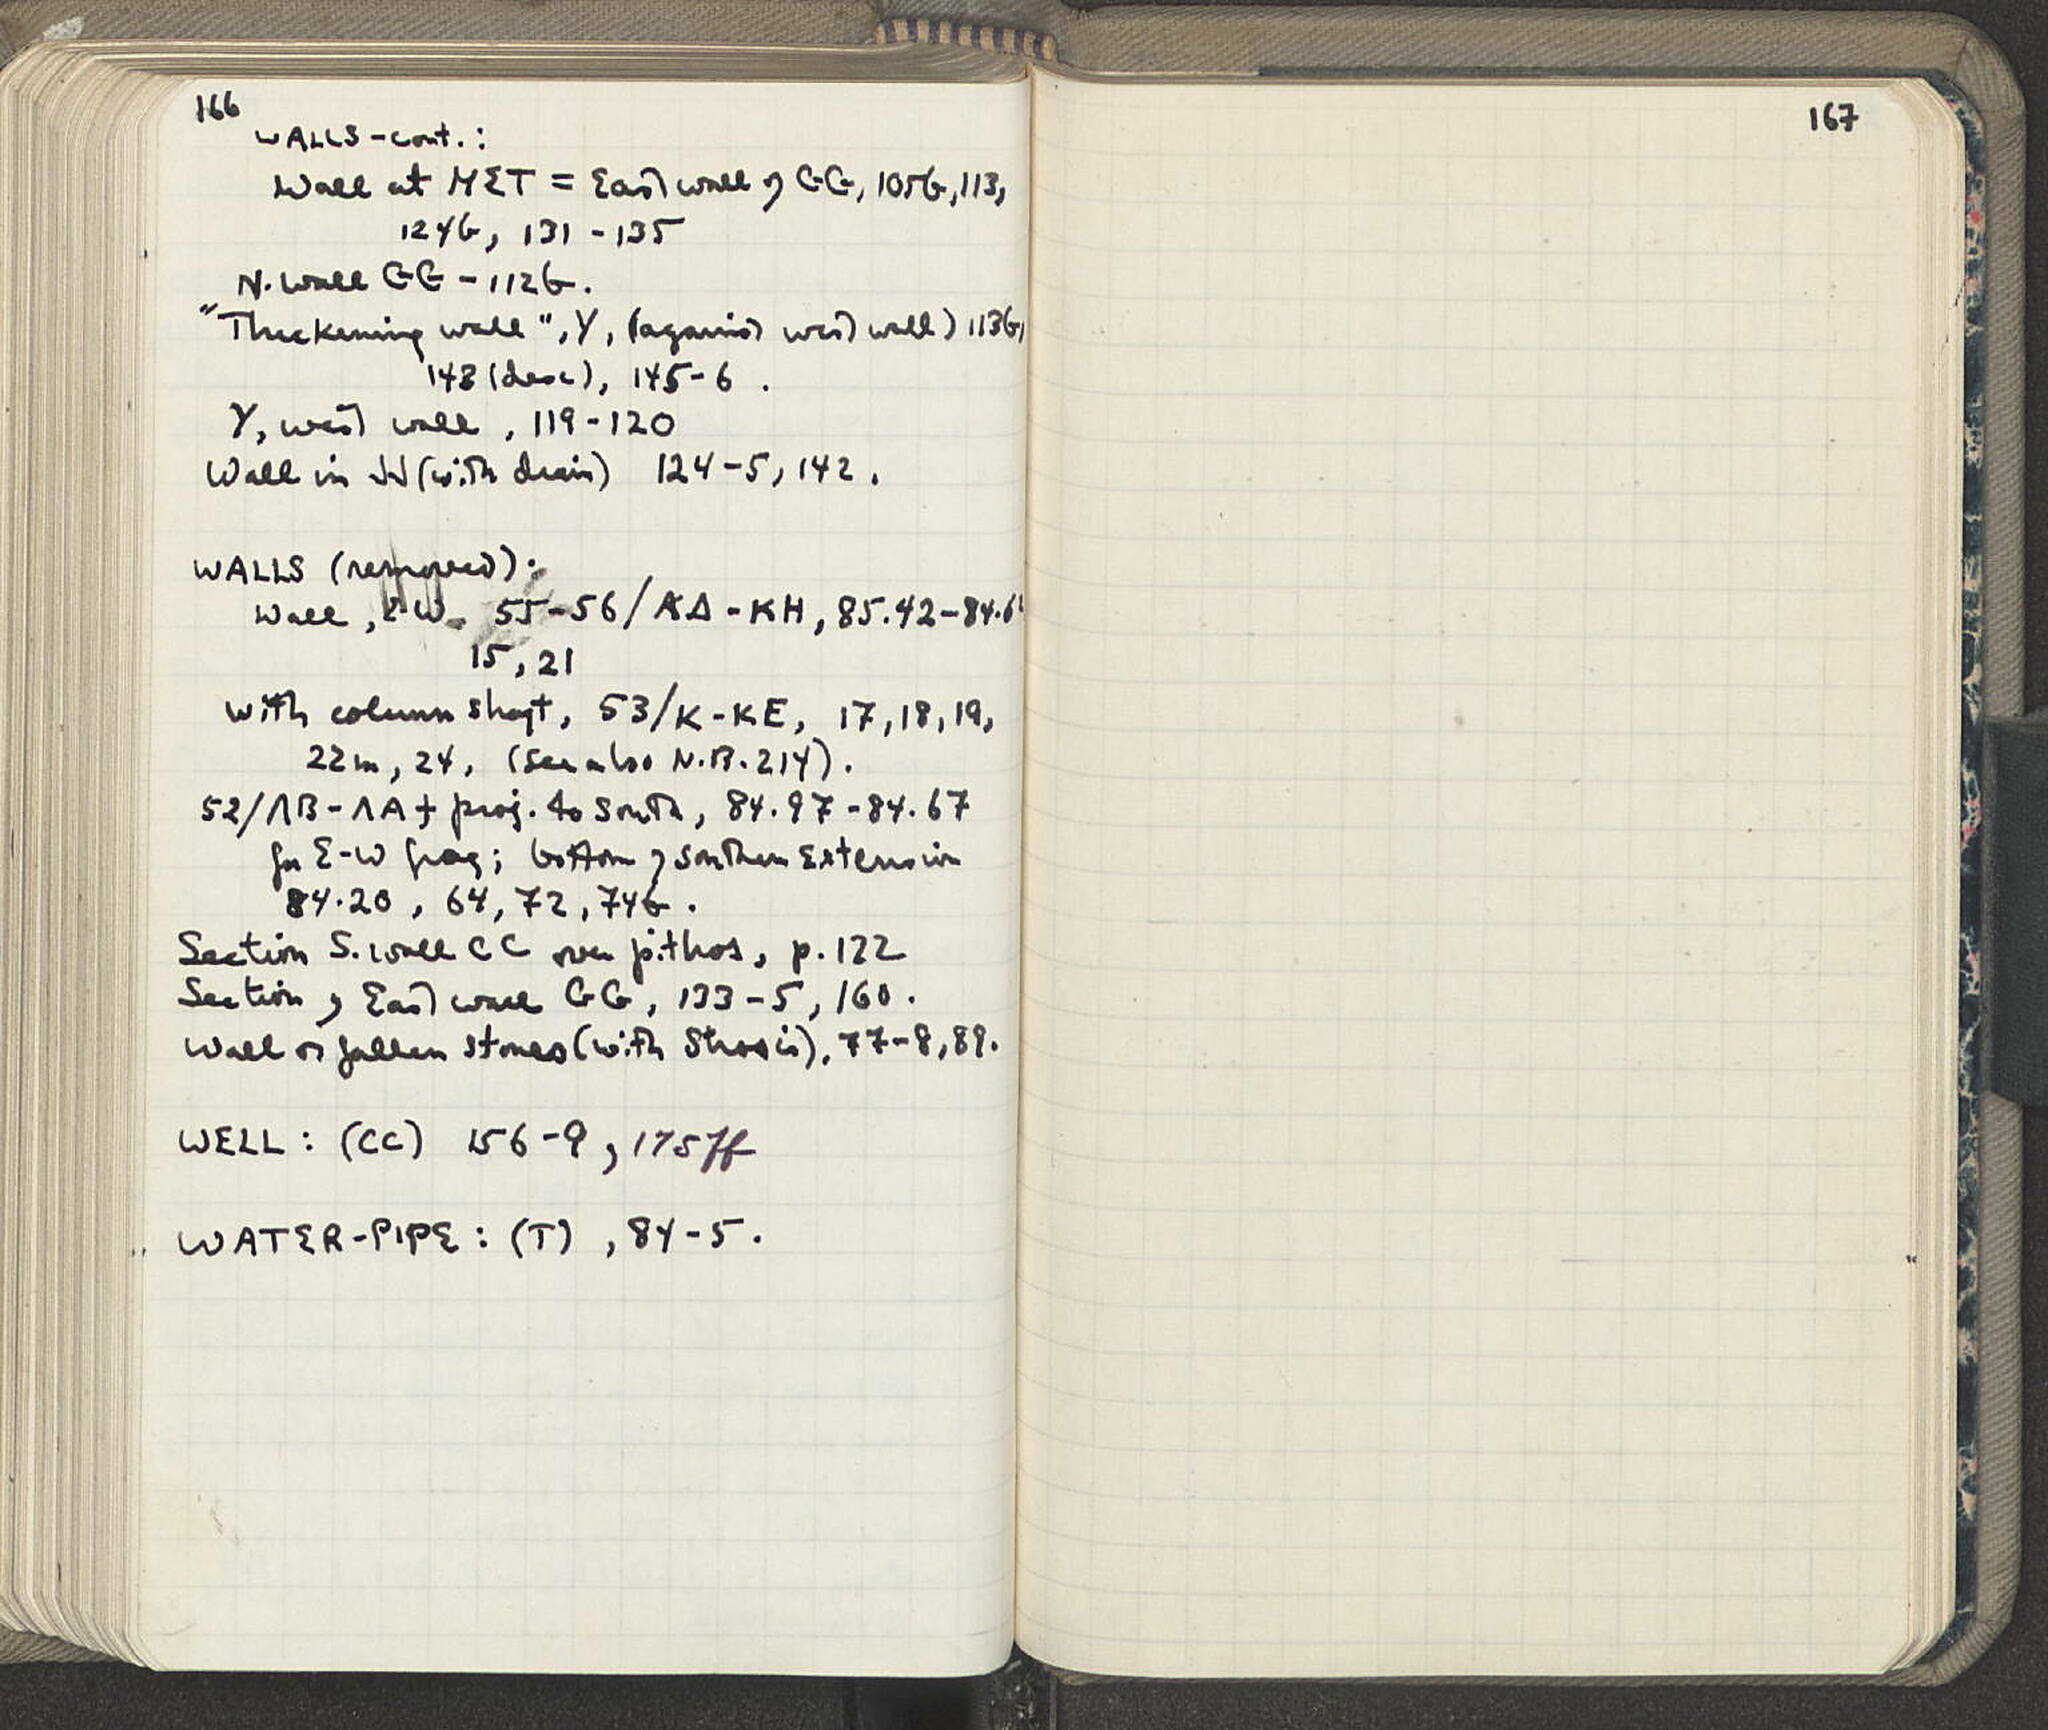 166
WALLS-cont.:
Wall at MET = East wall of GG, 105b, 113,
124b, 131-135
N. wall GG - 112b.
"Thickening wall", Y, (against west wall) 113b,
143 (desc), 145-6.
Y, west wall, 119-120
Wall in JJ (with drain) 124-5, 142.
WALLS (removed):
Wall, E-W. 55-56/ΚΔ-ΚΗ, 85.42-84.6
15, 21
with column shaft, 53/Κ-ΚΕ, 17, 18, 19,
22m, 24, (see also N.B. 214).
52/ΛΒ-ΛΑ + proj. to South, 84.97-84.67
for E-W frag; bottom of southern Extension
84.20, 64, 72, 74b.
Section S. wall CC over pithos, p. 122
Section of East wall GG, 133-5, 160.
Wall or fallen stones (with Strosis), 77-8, 89.
WELL: (CC) 156-9, 175ff
WATER-PIPE: (T), 84-5.
167